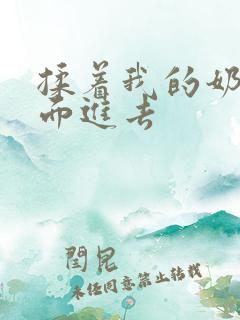 揉着我的奶
而进去
闫昆
未经同意禁止转载